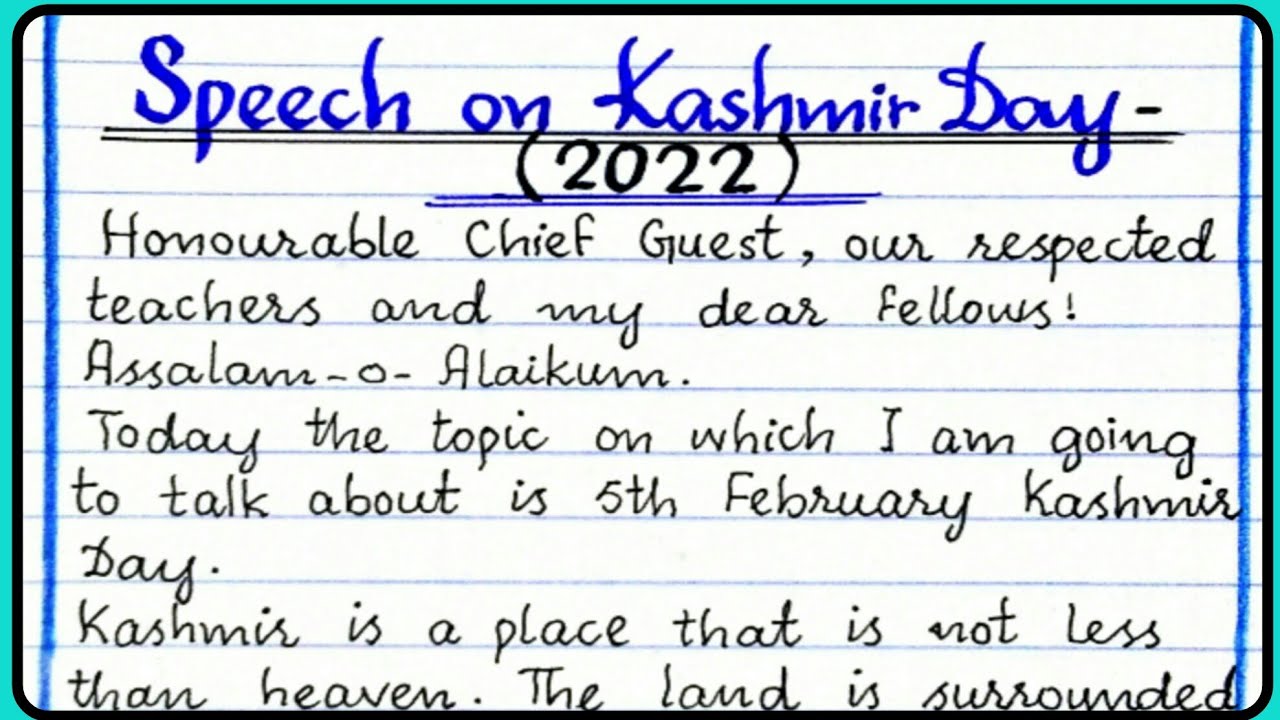 Speech on Kashmir Day-
(2022)
Honourable Chief Guest, our respected
teachers and my dear fellows!
Assalam-o-Alaikum.
Today the topic on which I am going
to talk about is 5th February Kashmir
Day.
Kashmir is a place that is not less
than heaven. The land is surrounded